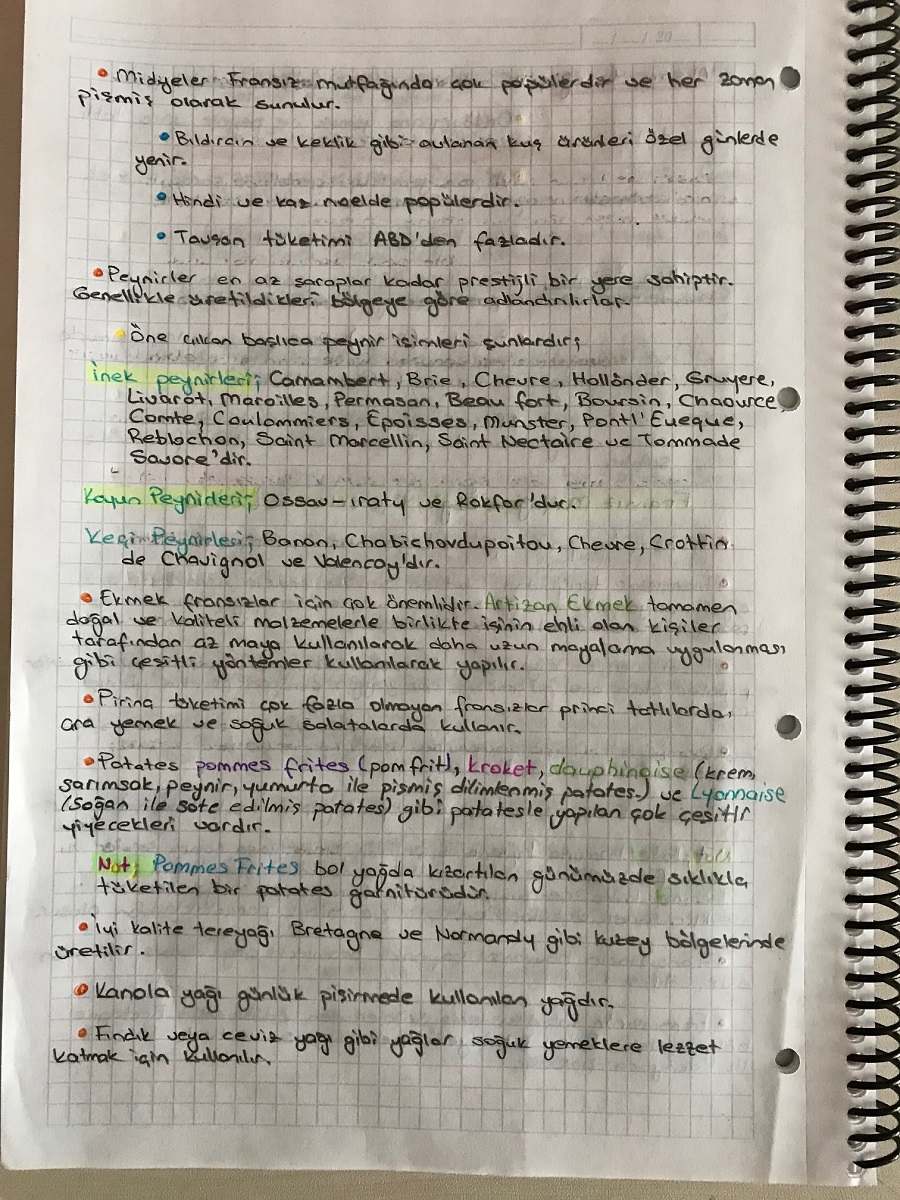 • Midyeler Fransız mutfağında çok popülerdir ve her zaman
pişmiş olarak sunulur.
• Bıldırcın ve keklik gibi avlanan kuş ürünleri özel günlerde
yenir.
• Hindi ve kaz noelde popülerdir.
• Tavşan tüketimi ABD'den fazladır.
• Peynirler en az şaraplar kadar prestijli bir yere sahiptir.
Genellikle üretildikleri bölgeye göre adlandırılırlar.
• Öne çıkan başlıca peynir isimleri şunlardır;
İnek peynirleri; Camambert, Brie, Chevre, Hollânder, Gruyere,
Livarot, Maroilles, Permasan, Beau fort, Boursin, Chaource,
Comte, Coulommiers, Epoisses, Munster, Pontl' Eveque,
Reblochon, Saint Marcellin, Saint Nectaire ve Tommade
Savore'dir.
Koyun Peynirleri; Ossau-ıraty ve Rokfor'dur.
Keçi Peynirleri; Banon, Chabichovdupoitou, Chevre, Crottin
de Chavignol ve Valencay'dır.
• Ekmek fransızlar için çok önemlidir. Artizan Ekmek tamamen
doğal ve kaliteli malzemelerle birlikte işinin ehli olan kişiler
tarafından az maya kullanılarak daha uzun mayalama uygulanması
gibi çeşitli yöntemler kullanılarak yapılır.
• Pirinç tüketimi çok fazla olmayan fransızlar princi tatlılarda,
ara yemek ve soğuk salatalarda kullanır.
• Patates pommes frites (pom frit), kroket, dauphinoise (krem,
sarımsak, peynir, yumurta ile pişmiş dilimlenmiş patates.) ve Lyonnaise
(Soğan ile sote edilmiş patates) gibi patatesle yapılan çok çeşitli
yiyecekleri vardır.
Not; Pommes Frites bol yağda kızartılan günümüzde sıklıkla
tüketilen bir patates garnitürüdür.
• İyi kalite tereyağı Bretagne ve Normandy gibi kuzey bölgelerinde
üretilir.
• Kanola yağı günlük pişirmede kullanılan yağdır.
• Fındık veya ceviz yağı gibi yağlar soğuk yemeklere lezzet
katmak için kullanılır.